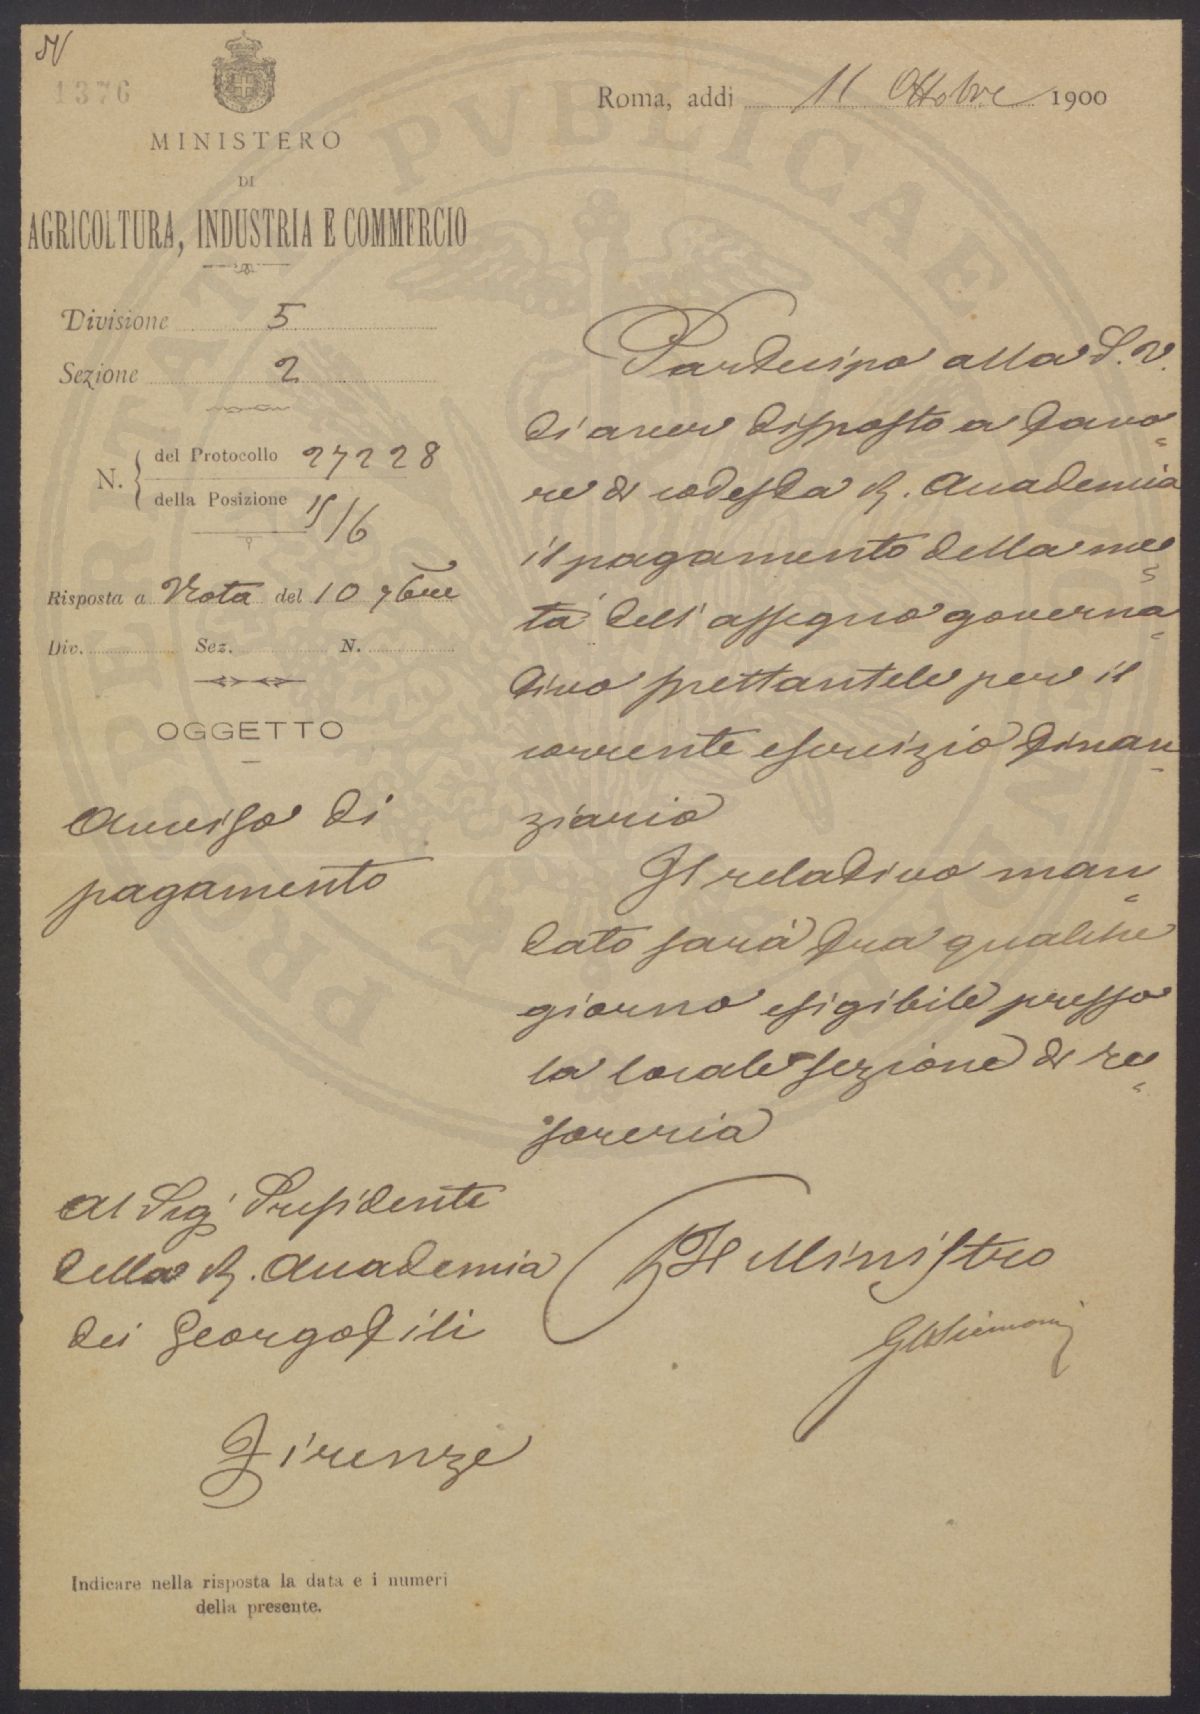 1376
MINISTERO
DI
AGRICOLTURA, INDUSTRIA E COMMERCIO
Roma, addì 11 Ottobre 1900
Divisione 5
Sezione 2
N. del Protocollo 27228
della Posizione 15/6
Risposta a Nota del 10 7bre
Div. Sez. N.
OGGETTO
Avviso di
pagamento
Partecipo alla S.V.
di aver disposto a favo=
re di codesta R. Accademia
il pagamento della me=
tà dell'assegno governa=
tivo spettantele per il
corrente esercizio finan=
ziario
Il relativo man=
dato sarà fra qualche
giorno esigibile presso
la locale sezione di te=
soreria
Al Sig. Presidente
della R. Accademia
dei Georgofili
Firenze
Il Ministro
Indicare nella risposta la data e i numeri
della presente.